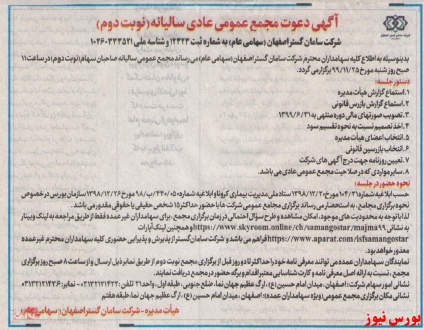 آگهی دعوت مجمع عمومی عادی سالیانه (نوبت دوم)
شرکت سامان گستر اصفهان (سهامی عام) به شماره ثبت ۱۲۴۲۳ و شناسه ملی ۱۰۲۶۰۳۳۳۵۲۱
بدینوسیله به اطلاع کلیه سهامداران محترم شرکت سامان گستر اصفهان (سهامی عام) می رساند مجمع عمومی عادی سالیانه صاحبان سهام (نوبت دوم) در ساعت ۱۱
صبح روز شنبه مورخ ۹۹/۱۱/۲۵ برگزار می گردد.
دستور جلسه:
۱. استماع گزارش هیأت مدیره
۲. استماع گزارش بازرس قانونی
۳. تصویب صورتهای مالی دوره منتهی به ۱۳۹۹/۶/۳۱
۴. اخذ تصمیم نسبت به نحوه تقسیم سود
۵. انتخاب اعضای هیأت مدیره
۶. انتخاب بازرسین قانونی
۷. تعیین روزنامه جهت درج آگهی های شرکت
۸. سایر مواردی که در صلاحیت مجمع عمومی عادی می باشد.
نحوه حضور در جلسه:
حسب ابلاغیه شماره ۱۰۴/۲۱ مورخ ۱۳۹۸/۱۲/۲۰ ستاد ملی مدیریت بیماری کرونا و ابلاغیه شماره ۴۴۰/۰۵۰/ب/۹۸ مورخ ۱۳۹۸/۱۲/۲۶ سازمان بورس در خصوص
نحوه برگزاری مجامع، به استحضار می رساند برگزاری مجامع عمومی شرکت ها با حضور حداکثر ۱۵ شخص حقیقی یا حقوقی مقدور می باشد.
لذا با توجه به محدودیت های موجود، امکان مشاهده و طرح سوال احتمالی در زمان برگزاری مجمع، برای سهامداران غیر عمده فقط از طریق مراجعه به لینک وبینار
به نشانی https://www.skyroom.online/ch/samangostar/majma99 و همچنین لینک آپارات
https://www.aparat.com/isfsamangostar فراهم می باشد و شرکت سامان گستر از پذیرش و پذیرایی حضوری کلیه سهامداران محترم غیر عمده
معذور خواهد بود.
نمایندگان سهامداران عمده می توانند معرفی نامه خود را حداکثر تا دو روز قبل از برگزاری مجمع نوبت دوم از طریق نمابر ذیل ارسال و از ساعت ۸ صبح روز برگزاری
مجمع، نسبت به ارائه اصل معرفی نامه و کارت شناسایی معتبر اقدام و برگه حضور در مجمع دریافت نمایند.
نشانی امور سهام شرکت: اصفهان، میدان امام حسین (ع)، ارگ عظیم جهان نما، ضلع جنوبی، طبقه اول، واحد ۲۱
نشانی مکان برگزاری مجمع عمومی (ویژه سهامداران عمده): اصفهان، میدان امام حسین (ع)، ارگ عظیم جهان نما، طبقه هفتم
هیأت مدیره - شرکت سامان گستر اصفهان (سهامی عام)
بورس نیوز